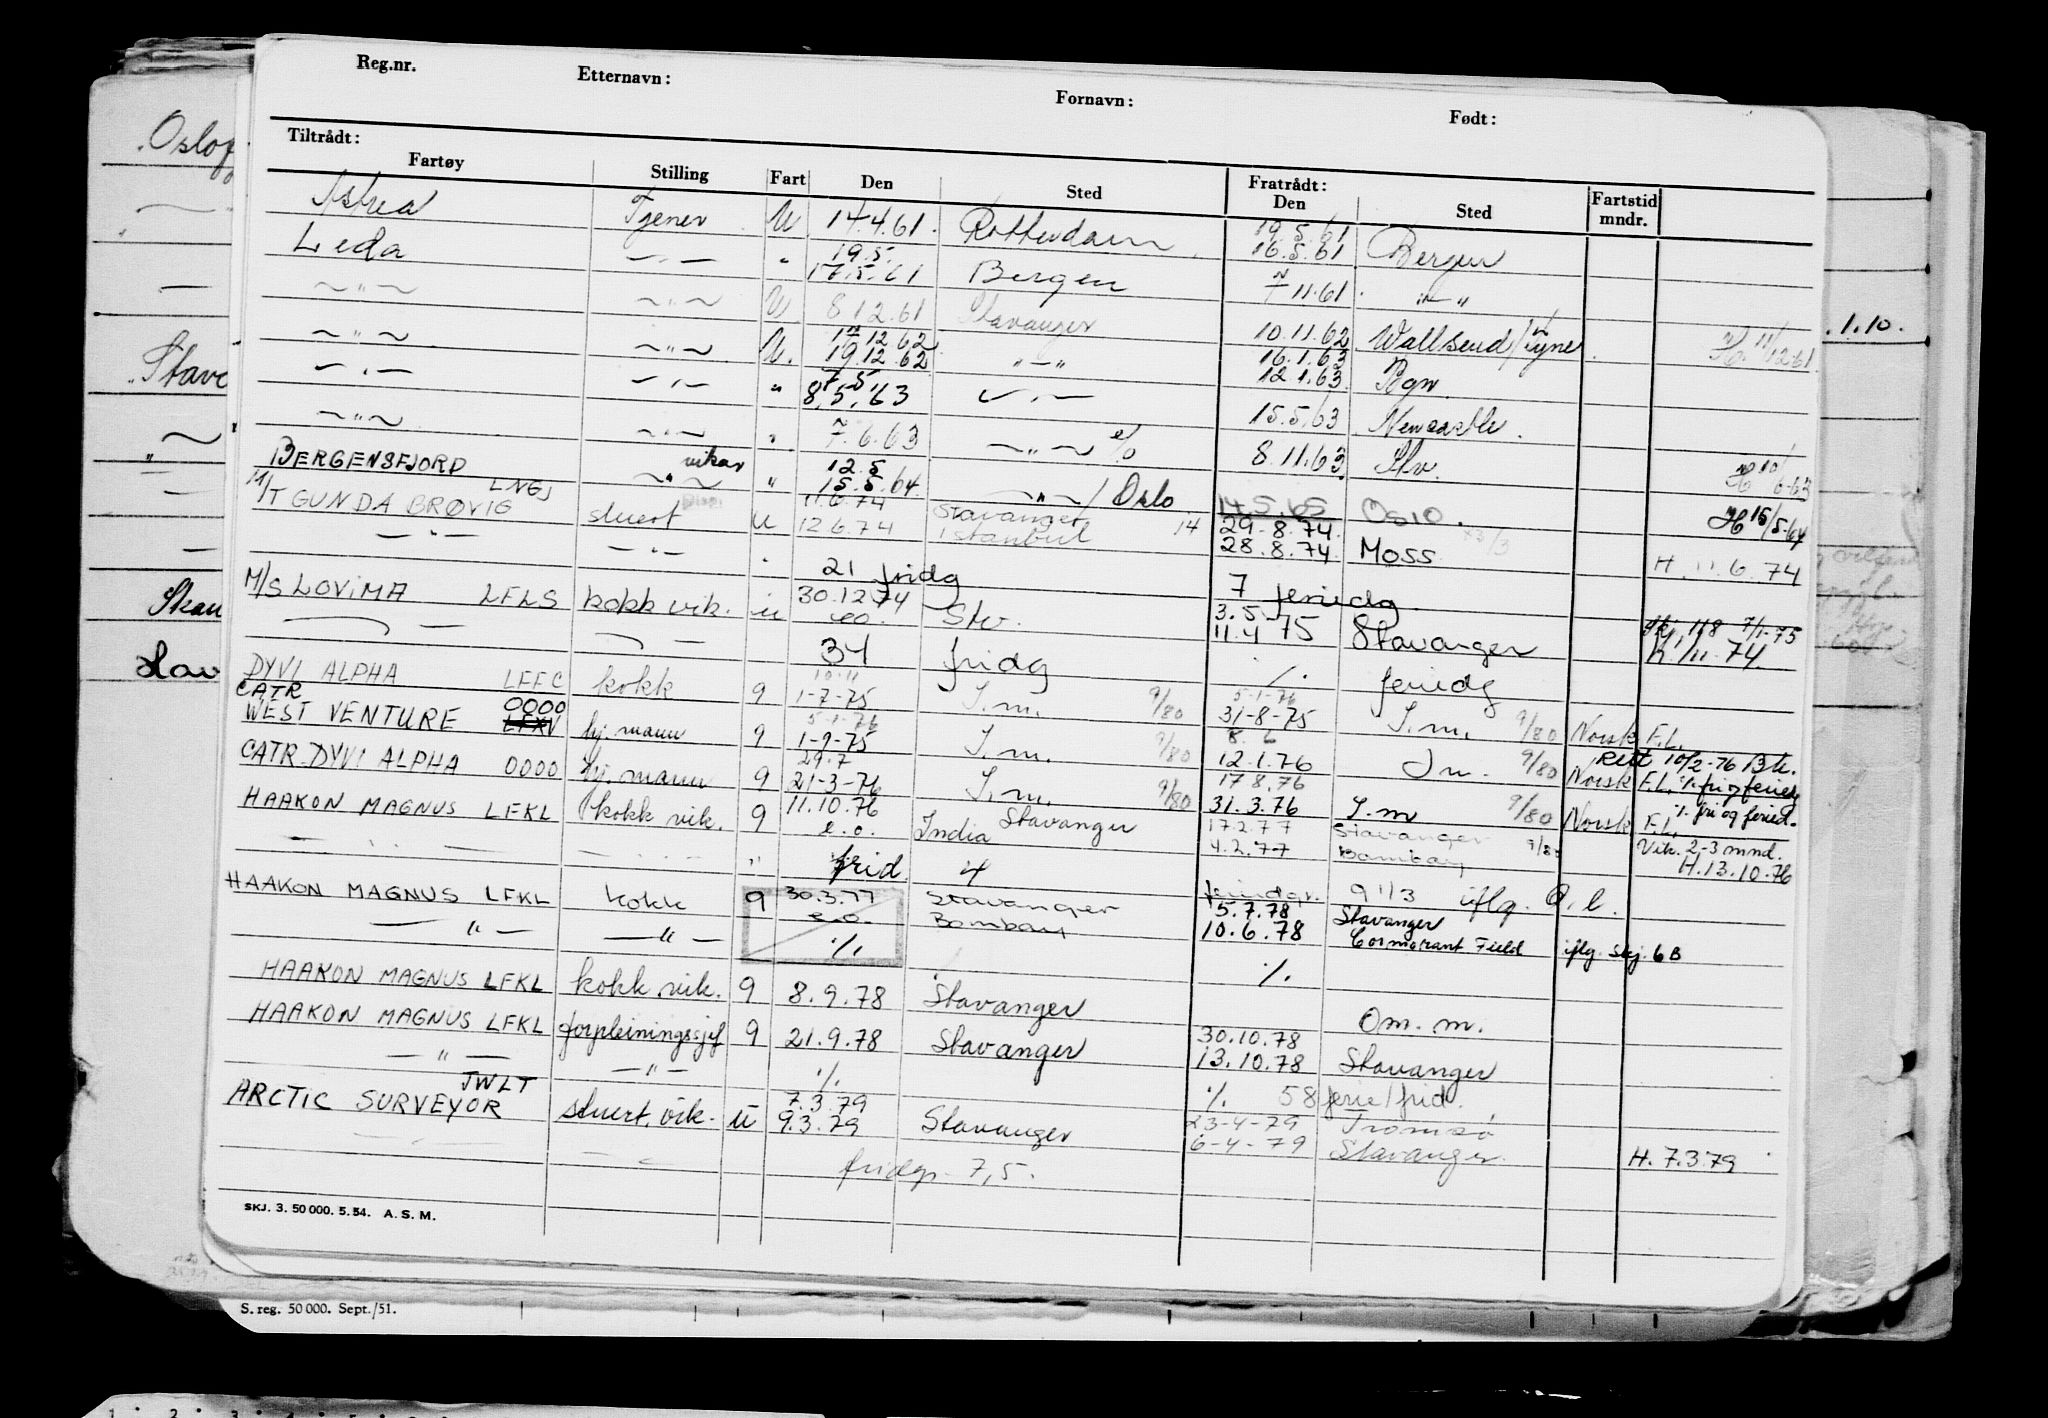 Reg.nr. Etternavn: Fornavn: Født:
Tiltrådt: Fratrådt:
Fartøy Stilling Fart Den Sted Den Sted Fartstid mndr.
Astrea Tjener U 14.4.61. Rotterdam 19.5.61 16.5.61 Bergen
Leda —„— " 19.5. 17.5.61 Bergen 7 11.61 —"—
~"~ ~"~ U 8 12.61 Stavanger 10.11.62 Wallsend/Tyne 12.61
~"~ ~"~ U. 12.12.62 19.12.62 —"— 16.1.63 12.1.63 Bgn.
—„— —„— " 7.5 8.5.63 —„— 15.5.63 Newcastle.
~"~ ~„~ " 7.6.63 ~"~ e/o 8.11.63 Stv. 10/6-63
BERGENSFJORD vikar ~"~ " 12.5 15.5.64 ~"~/Oslo 14.5.65 Oslo. H 15/5-64
M/T GUNDA BRØVIG LNGJ stuert U 11.6.74 12.6.74 Stavanger Istanbul 14 29-8.74 28.8.74 Moss H. 11.6.74
—"— —"— " 21 fridg 7 feriedg
M/S LOVIMA LFLS kokk vik. u 30.12 74 e.o. Stv. 3.5. 11.4 75 Stavanger 118 7/1-75 h. 1/11.74
34 fridg ./. feriedg
DYVI ALPHA LFFC kokk 9 10.11 1-7-75 I.m. 9/80 5-1-76 31-8-75 I.m. 9/80 Norsk F.L.
CATR WEST VENTURE 0000 LFXV hj. mann 9 5-1-76 1-9-75 I.m. 9/80 8. 6 12.1.76 I m. 9/80 Norsk F.L. Rett 10/2-76 Bk. ./. fri og feriedg
CATR. DYVI ALPHA 0000 hj. mann 9 29.7 21-3-76 I.m. 9/80 17 8.76 31.3.76 I.m 9/80 Norsk F.L. ./. fri og feried.
HAAKON MAGNUS LFKL kokk vik. 9 11.10.76 e.o. Stavanger India 17.2.77 4.2.77 Stavanger Bombay 9/80 Vik. 2-3 mnd. H. 13.10.76
—"— " frid. 4 feriedgr. 9 1/3 iflg.
HAAKON MAGNUS LFKL kokk 9 30.3.77 e.o. Stavanger Bombay 5.7.78 10.6.78 Stavanger Cormorant Field iflg. skj. 6B
—"— —"— ./. ./.
HAAKON MAGNUS LFKL kokk vik. 9 8.9.78 Stavanger Om. m.
HAAKON MAGNUS LFKL forpleiningssjef 9 21.9.78 Stavanger 30.10.78 13.10.78 Stavanger
—"— —"— ./. ./. 58 ferie/frid.
ARCTIC SURVEYOR JWLT stuert. vik. u 7.3.79 9.3.79 Stavanger 23-4-79 6-4-79 Tromsø Stavanger. H. 7.3.79
fridgr. 7,5.
SKJ. 3. 50 000. 5. 54. A. S. M.
S. reg. 50 000. Sept./51.
Oslof
Stava
Skau
Stav
.1.10.